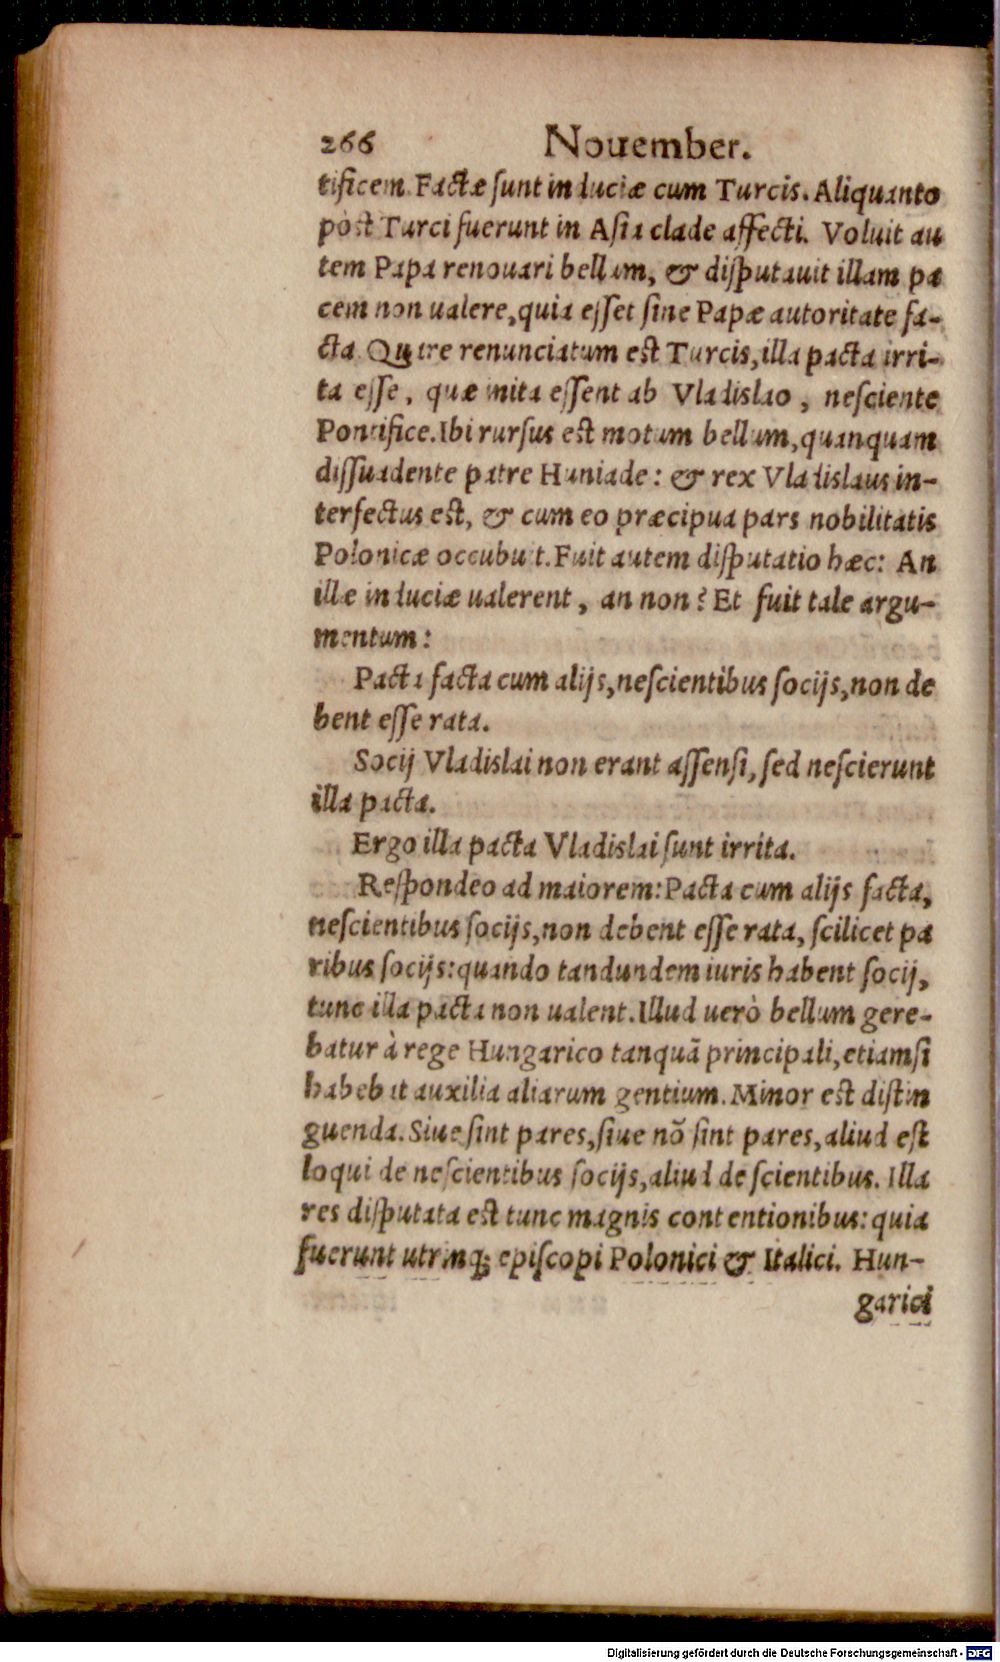 266 Nouember.
tificem. Factæ sunt induciæ cum Turcis. Aliquanto
pòst Turci fuerunt in Asia clade affecti. Voluit au
tem Papa renouari bellum, & disputauit illam pa
cem non ualere, quia esset sine Papæ autoritate fa-
cta. Quare renunciatum est Turcis, illa pacta irri-
ta esse, quæ inita essent ab Vladislao, nesciente
Pontifice. Ibi rursus est motum bellum, quanquam
dissuadente patre Huniade: & rex Vladislaus in-
terfectus est, & cum eo præcipua pars nobilitatis
Polonicæ occubuit. Fuit autem disputatio hæc: An
illæ induciæ ualerent, an non? Et fuit tale argu-
mentum:
Pacta facta cum alijs, nescientibus socijs, non de
bent esse rata.
Socij Vladislai non erant assensi, sed nescierunt
illa pacta.
Ergo illa pacta Vladislai sunt irrita.
Respondeo ad maiorem: Pacta cum alijs facta,
nescientibus socijs, non debent esse rata, scilicet pa
ribus socijs: quando tandundem iuris habent socij,
tunc illa pacta non ualent. Illud uerò bellum gere-
batur à rege Hungarico tanquã principali, etiamsi
habebat auxilia aliarum gentium. Minor est distin
guenda. Siue sint pares, siue nõ sint pares, aliud est
loqui de nescientibus socijs, aliud de scientibus. Illa
res disputata est tunc magnis contentionibus: quia
fuerunt utrinq; episcopi Polonici & Italici. Hun-
garici
Digitalisierung gefördert durch die Deutsche Forschungsgemeinschaft - DFG